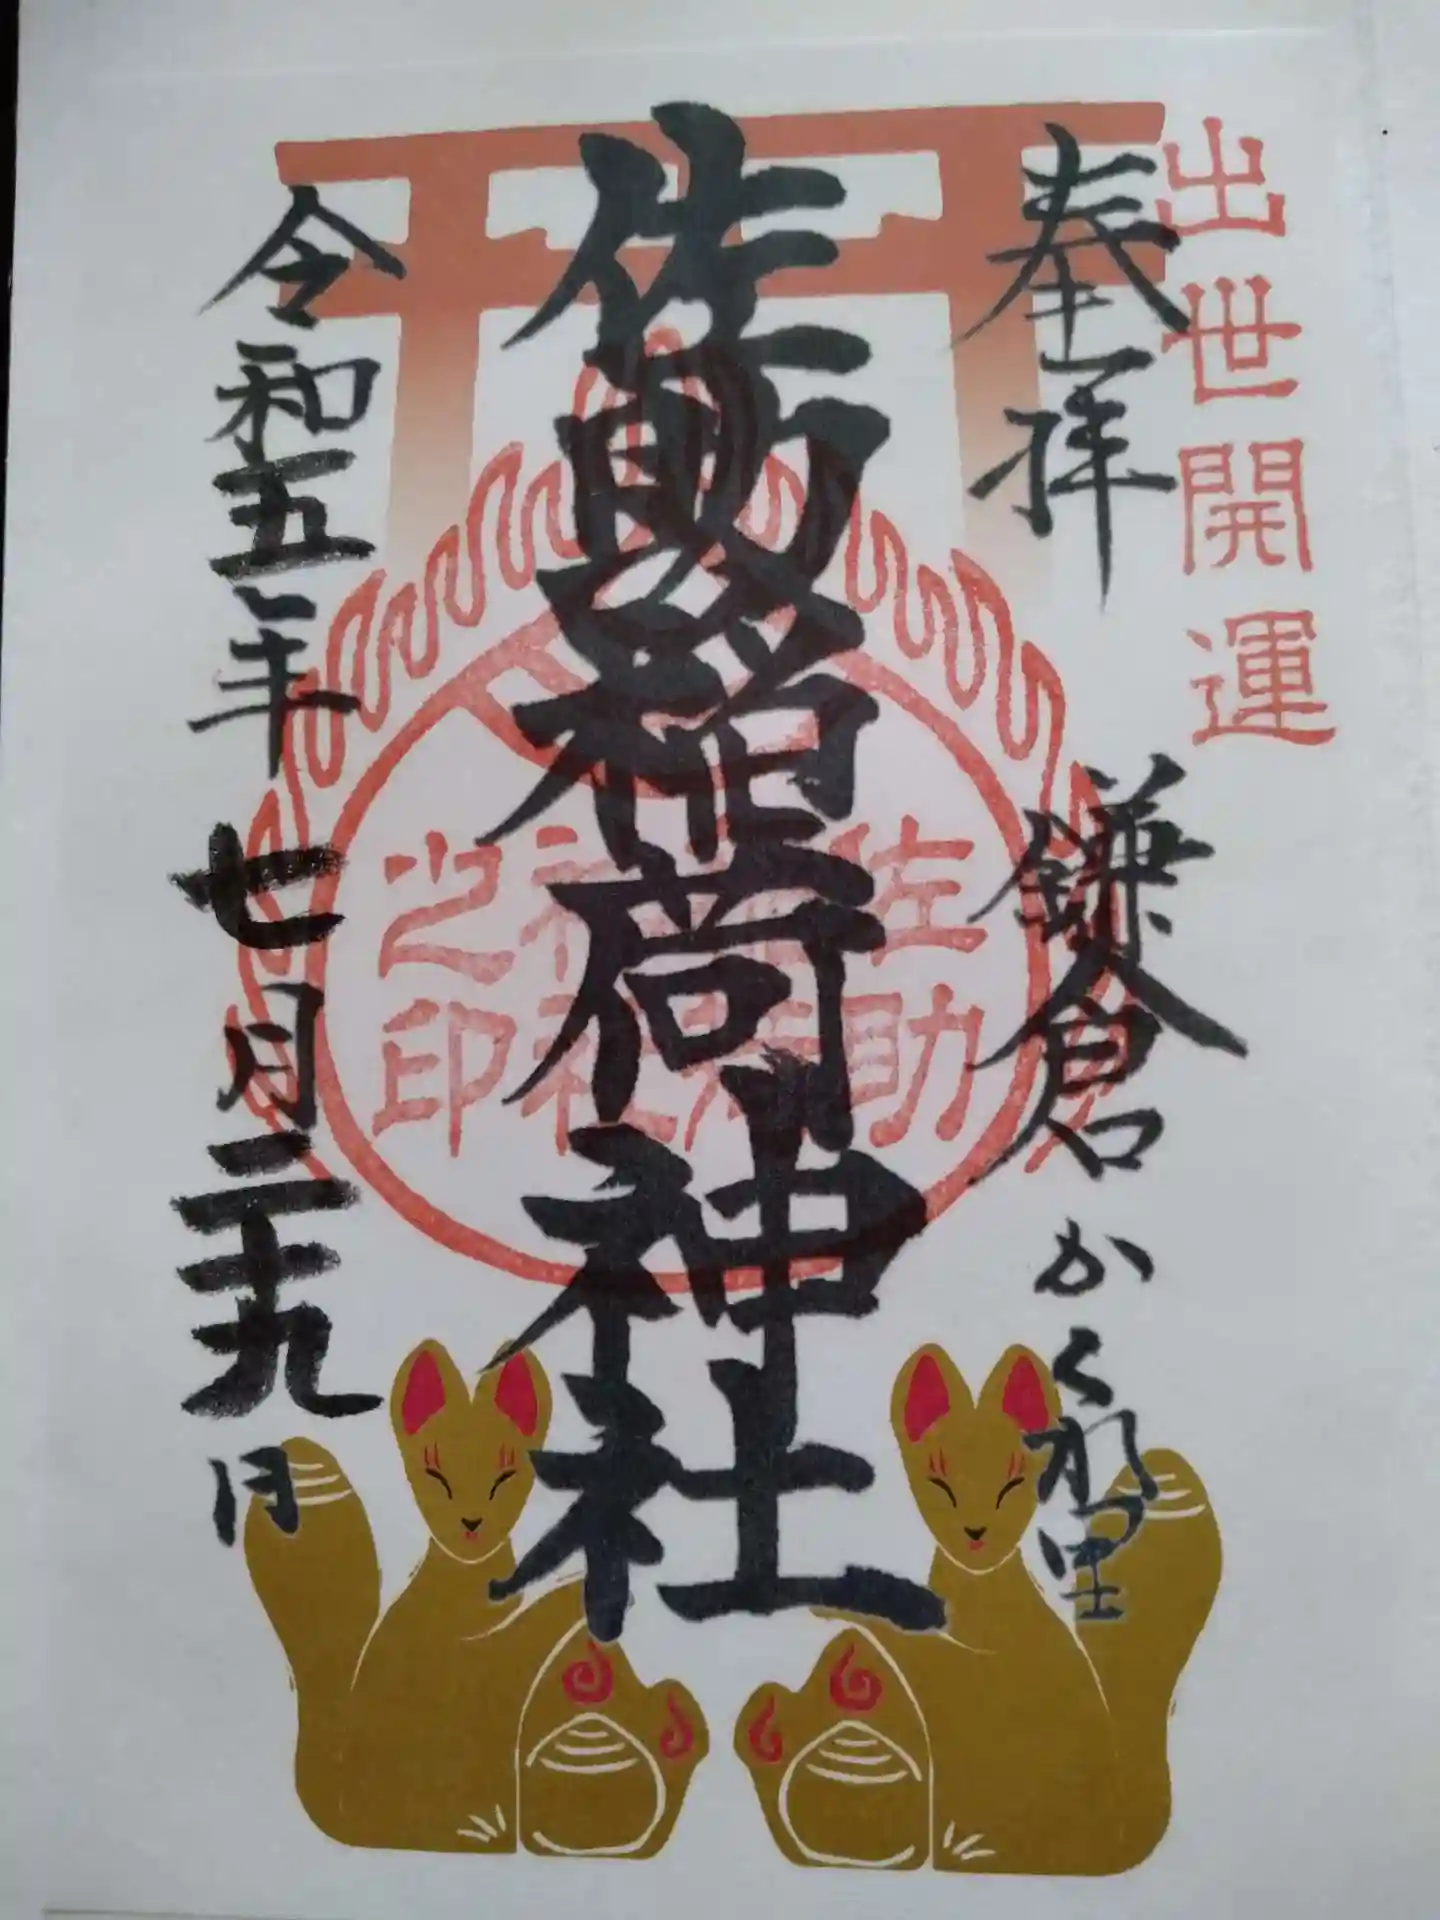 出世開運
奉拝 鎌倉かくれ里
佐助稲荷神社
佐助
神社
之印
令和五年 七月二十九日